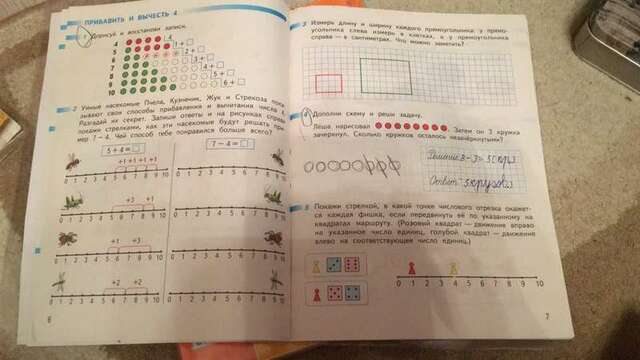 ПРИБАВИТЬ И ВЫЧЕСТЬ 4
1 Дорисуй и восстанови записи.
4 4
5 1 +
6 2 +
7 3 +
8 4 +
9 5 +
10 6 +
2 Умные насекомые Пчела, Кузнечик, Жук и Стрекоза пока-
зывают свои способы прибавления и вычитания числа 4.
Разгадай их секрет. Запиши ответы и на рисунках справа
покажи стрелками, как эти насекомые будут решать при-
мер 7 − 4. Чей способ тебе понравился больше всего?
5 + 4 =
7 − 4 =
+1 +1 +1 +1
0 1 2 3 4 5 6 7 8 9 10
0 1 2 3 4 5 6 7 8 9 10
+3 +1
0 1 2 3 4 5 6 7 8 9 10
0 1 2 3 4 5 6 7 8 9 10
+1 +3
0 1 2 3 4 5 6 7 8 9 10
0 1 2 3 4 5 6 7 8 9 10
+2 +2
0 1 2 3 4 5 6 7 8 9 10
0 1 2 3 4 5 6 7 8 9 10
6
3 Измерь длину и ширину каждого прямоугольника: у прямо-
угольника слева измерь в клетках, а у прямоугольника
справа — в сантиметрах. Что можно заметить?
4 Дополни схему и реши задачу.
Лёша нарисовал
Затем он 3 кружка
зачеркнул. Сколько кружков осталось незачёркнутыми?
Решение 8-3=5
Ответ
5 Покажи стрелкой, в какой точке числового отрезка окажет-
ся каждая фишка, если передвинуть её по указанному на
квадратах маршруту. (Розовый квадрат — движение вправо
на указанное число единиц, голубой квадрат — движение
влево на соответствующее число единиц.)
0 1 2 3 4 5 6 7 8 9 10
7